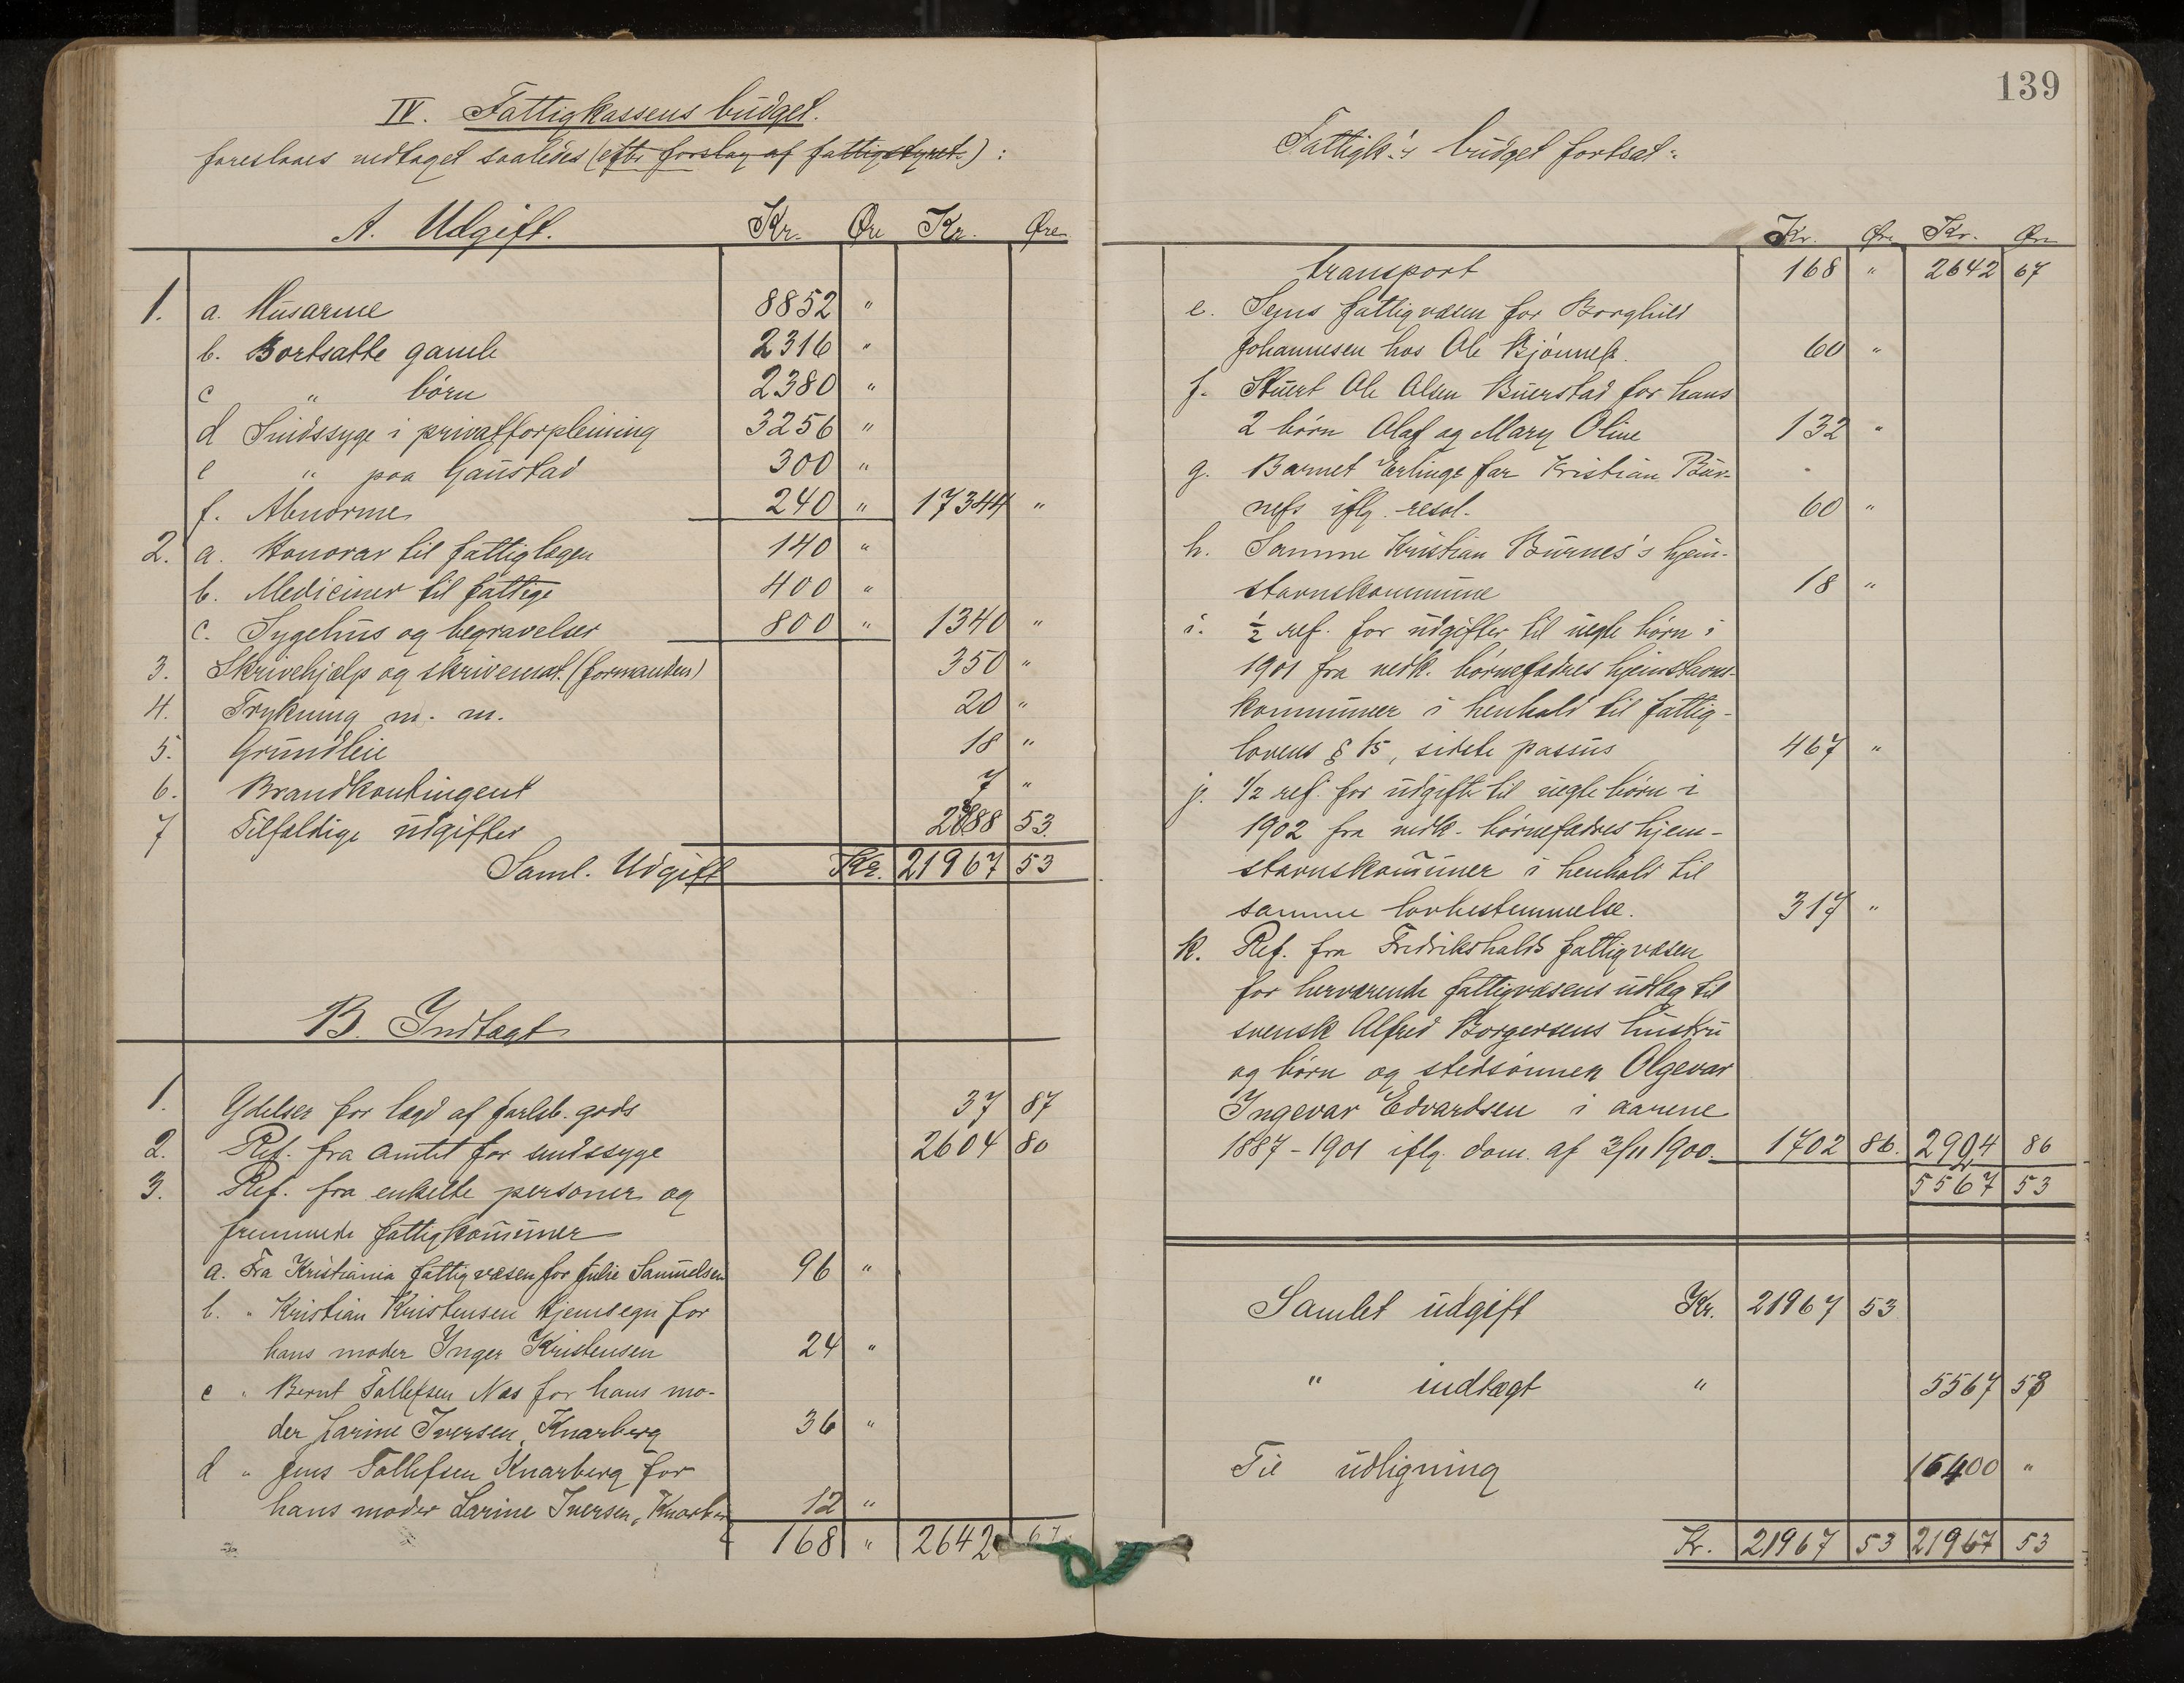 IV. Fattigkassens budget.
foreslaaes vedtaget saaledes (efter forslag af fattigstyret.) :
A. Udgift. Kr. Øre Kr. Øre
1. a. Husarme 8852 "
b. Bortsatte gamle 2316 "
c " börn 2380 "
d Sindssyge i privatforpleining 3256 "
e " paa Gaustad 300 "
f. Abnorme 240 " 17344 "
2. a. Honorar til fattiglægen 140 "
b. Mediciner til fattige 400 "
c. Sygehus og begravelser 800 " 1340 "
3. Skrivehjælp og skrivemat. (formanden) 350 "
4. Trykning m. m. 20 "
5. Grundleie 18 "
6. Brandkontingent 7 "
7 Tilfældige udgifter 2888 53.
Saml. Udgift Kr. 21967 53
B. Indtægt
1. Ydelser for lægd af Jarlsb. gods 37 87
2. Ref. fra amtet for sindssyge 2604 80
3. Ref. fra enkelte personer og
fremmede fattigkommuner
a. Fra Kristiania fattigvæsen for Julie Samuelsen 96 "
b. " Kristian Kristensen Hjemsegn for
hans moder Inger Kristensen 24 "
c " Bernt Tollefsen Næs for hans mo-
der Larine Iversen, Knarberg 36 "
d " Jens Tollefsen Knarberg for
hans moder Larine Iversen, Knarb 12 "
168 " 2642 67
139
Fattigk.'s budget fortsat:
Kr. Øre Kr. Øre
transport 168 " 2642 67
e. Sems fattigvæsen for Borghild
Johannesen hos Ole Bjönnes. 60 "
f. Stuert Ole Olsen Buerstad for hans
2 börn Olaf og Mary Oline 132 "
g. Barnet Erlings far Kristian Bur-
nes iflg. resol. 60 "
h. Samme Kristian Burnes's hjem-
stavnskommune 18 "
i. ½ ref. for udgifter til uegte börn i
1901 fra vedk. börnefædres hjemstavns-
kommuner i henhold til fattig-
lovens § 15, sidste passus 467 "
j. 1/2 ref. for udgifter til uegte börn i
1902 fra vedk. börnefædres hjem-
stavnskommuner i henhold til
samme lovbestemmelse. 317 "
k. Ref. fra Fredrikshalds fattigvæsen
for herværende fattigvæsens udlæg til
svensk Alfred Borgersens hustru
og börn og stedsönnen Olgevar
Ingevar Edvardsen i aarene
1887-1901 iflg. dom af 3/11 1900. 1702 86. 2924 86
5567 53
Samlet udgift Kr. 21967 53
" indtægt " 5567 53
Til udligning 16400 "
Kr. 21967 53 21967 53